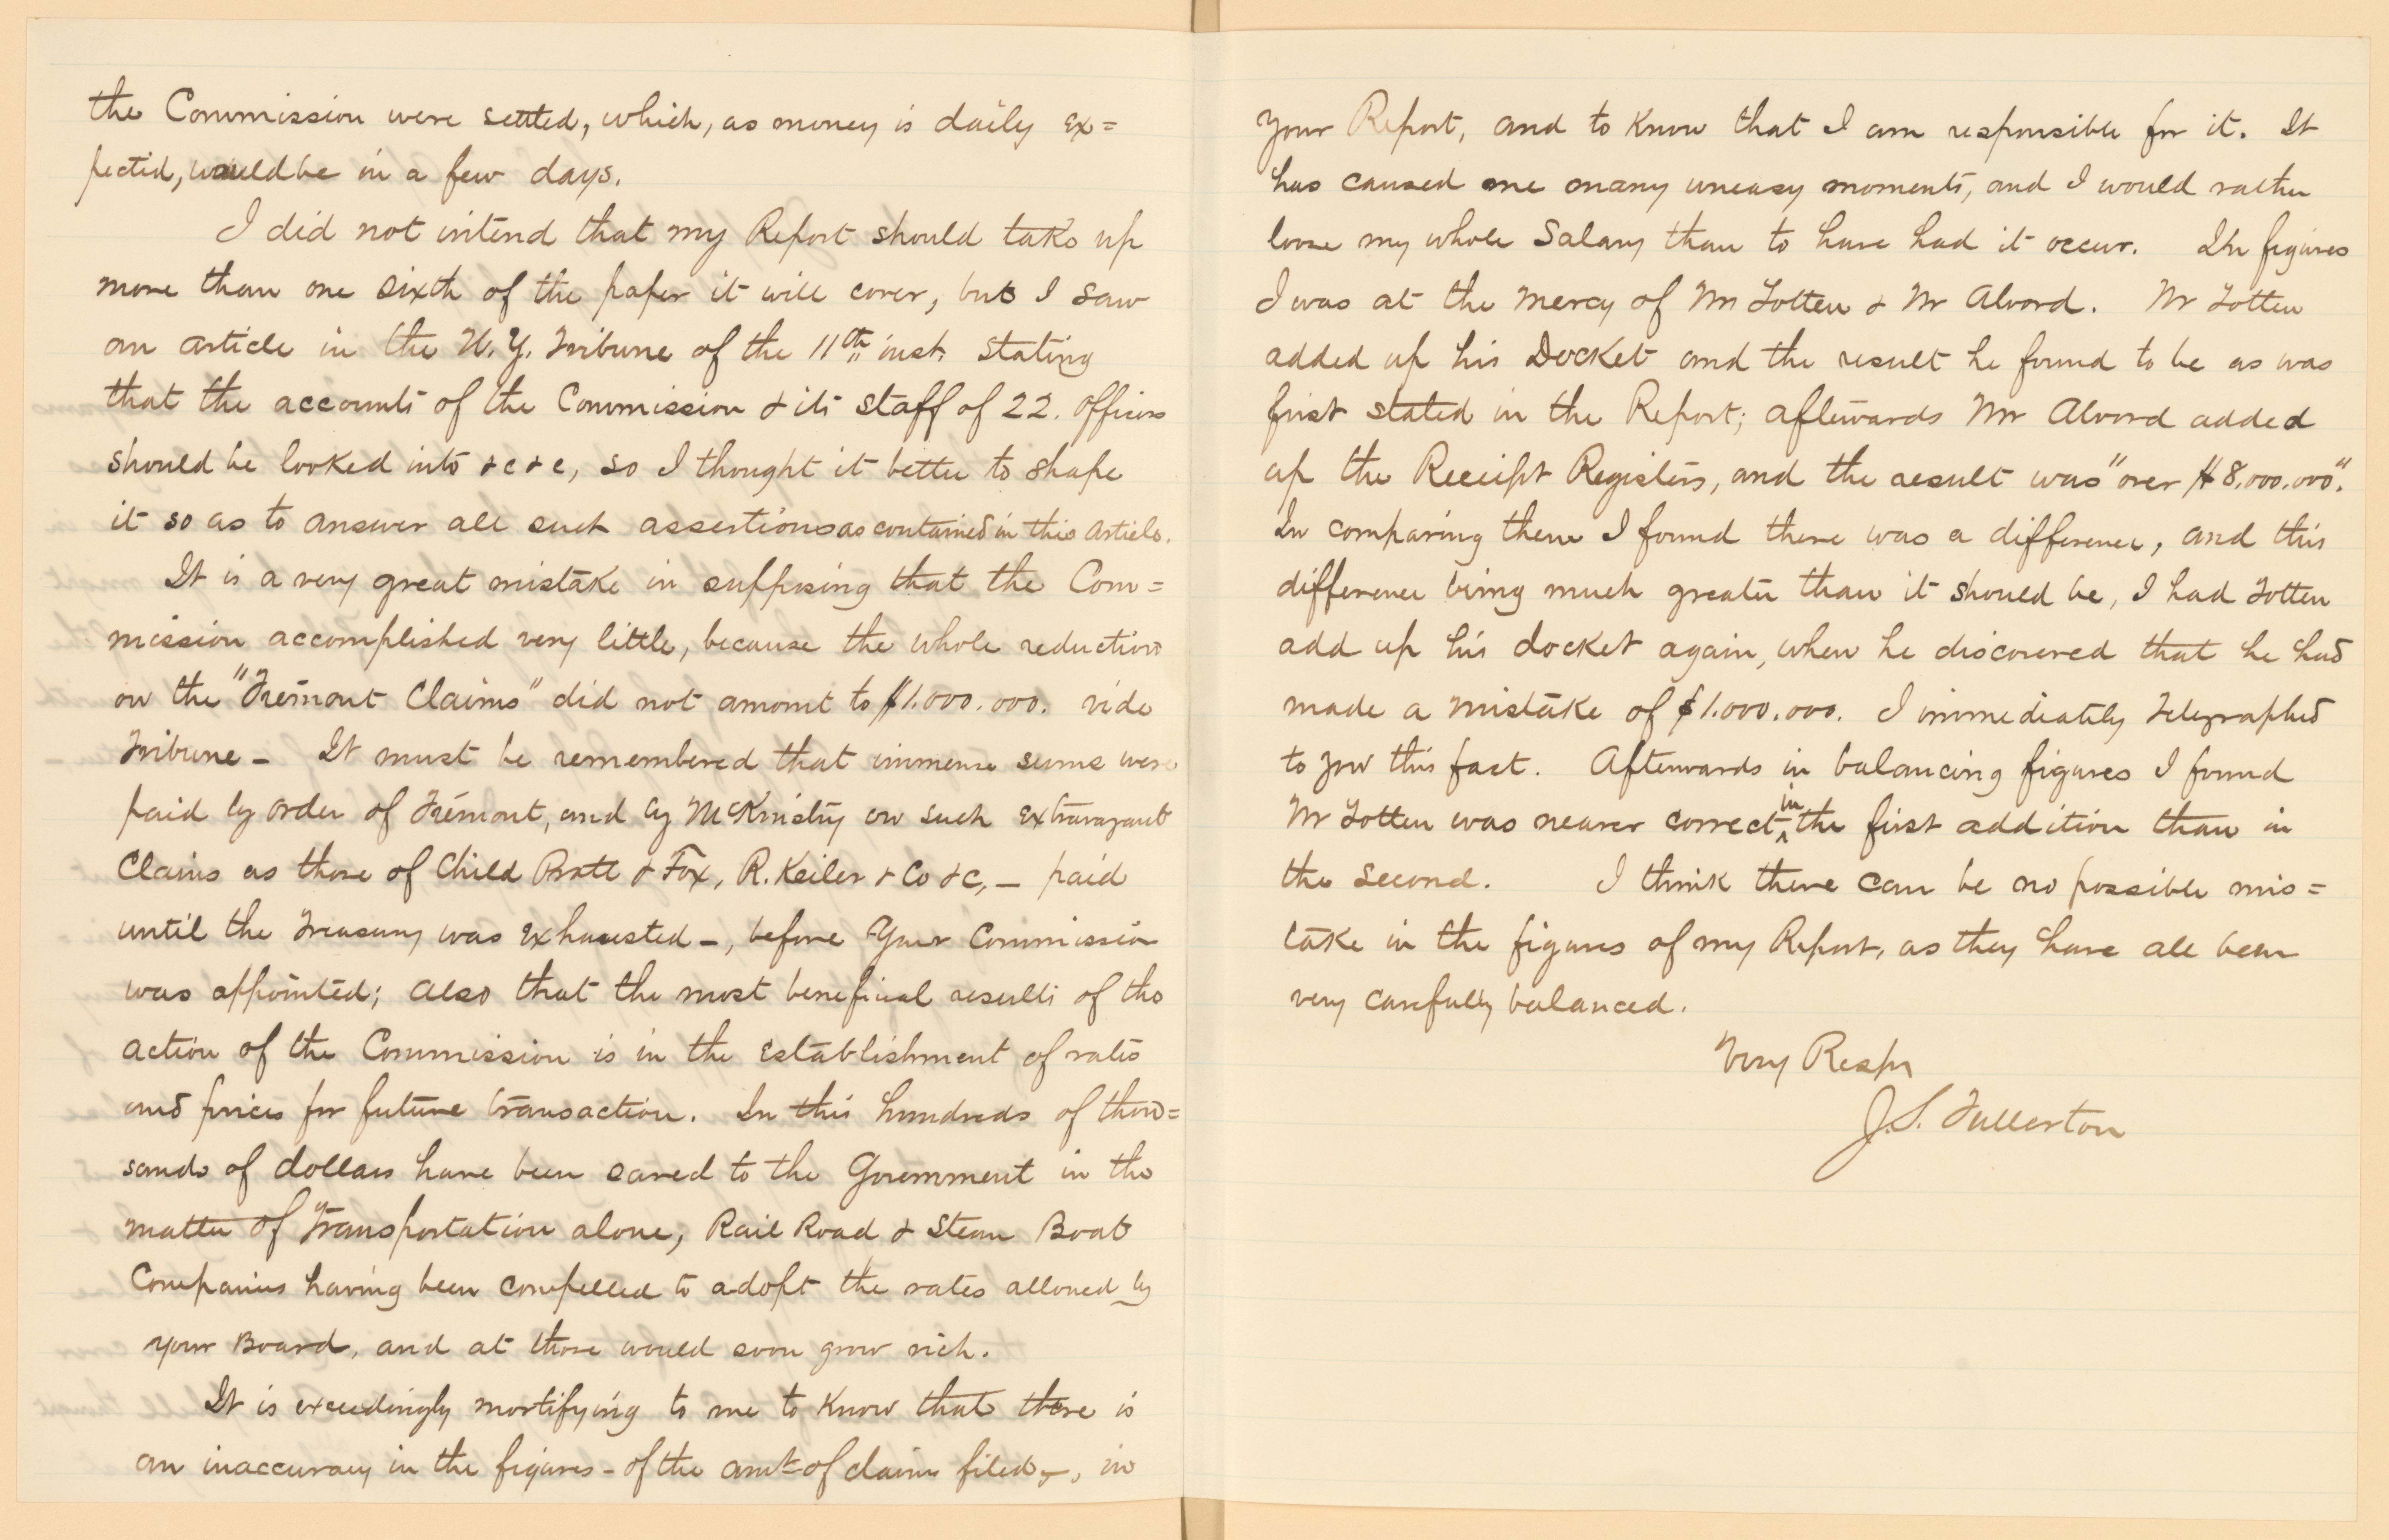 the Commission were settled, which, as money is daily ex=
pected, would be in a few days.
I did not intend that my Report should take up
more than one sixth of the paper it will cover, but I saw
an article in the N.Y. Tribune of the 11th inst. stating
that the accounts of the Commission & its staff of 22. officers
should be looked into &c &c, so I thought it better to shape
it so as to answer all such assertions as contained in this article.
It is a very great mistake in supposing that the Com=
mission accomplished very little, because the whole reduction
on the "Fremont Claims" did not amount to $1.000.000. vide
Tribune – It must be remembered that immense sums were
paid by order of Fremont, and by McKinstry on such extravagant
Claims as those of Child Pratt & Fox, R. Keiler & Co &c, – paid
until the Treasury was exhausted –, before your Commission
was appointed; also that the most benefical results of the
action of the Commission is in the establishment of rates
and prices for future transaction. In this hundreds of thou=
sands of dollars have been saved to the Government in the
matter of Transportation alone, Rail Road & Steam Boat
Companies having been compelled to adopt the rates allowed by
your Board, and at those would soon grow rich.
It is exceedingly mortifying to me to know that there is
an inaccuracy in the figures – of the amt of claims filed –, in
your Report, and to know that I am responsible for it. It
has caused me many uneasy moments, and I would rather
loose my whole Salary than to have had it occur. In figures
I was at the mercy of Mr Totten & Mr Alvord. Mr Totten
added up his Docket and the result he found to be as was
first stated in the Report; afterwards Mr Alvord added
up the Receipt Registers, and the result was "over $8,000.000".
In comparing them I found there was a difference, and this
difference being much greater than it should be, I had Totten
add up his docket again, when he discovered that he had
made a mistake of $1.000.000. I immediately Telegraphed
to you this fact. Afterwards in balancing figures I found
Mr Totten was nearer correct in the first addition than in
the second. I think there can be no possible mis=
take in the figures of my Report, as they have all been
very carefully balanced.
Very Respy
J.S. Fullerton